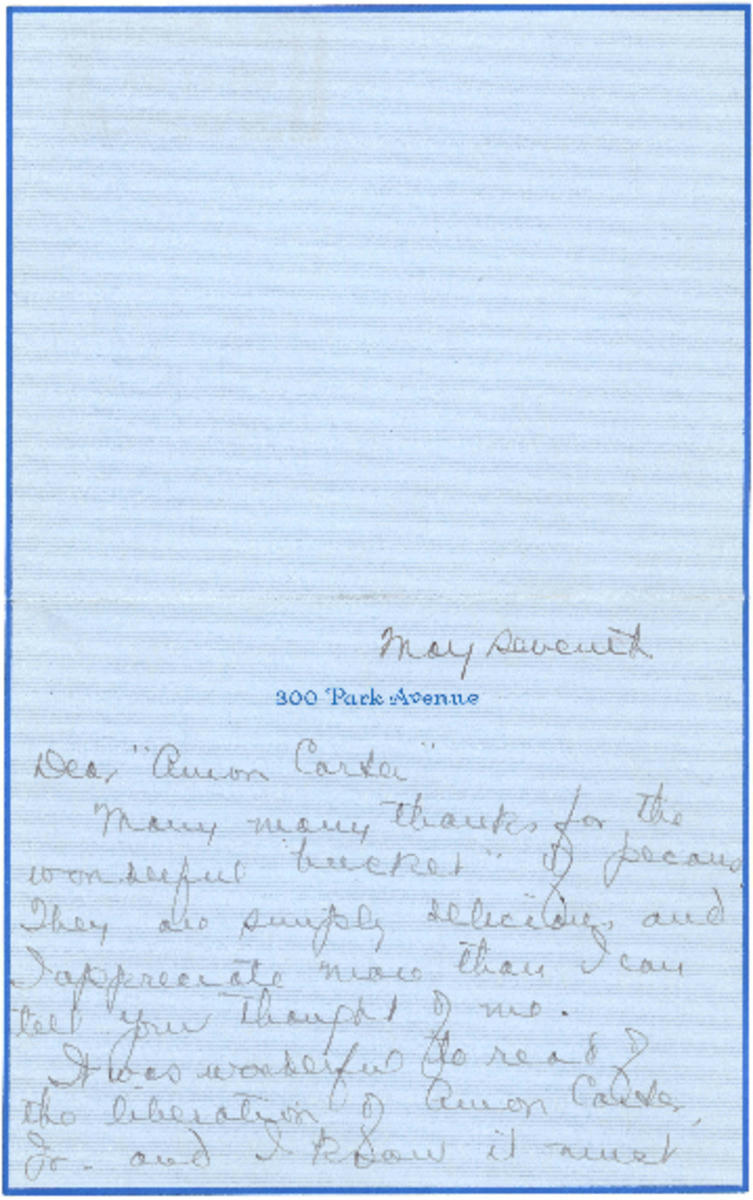 May seventh
300 Park Avenue
Dear "Amon Carter"
Many many thanks for the
wonderful "bucket" of pecans
They are simply delicious and
I appreciate more than I can
tell your thought of me.
It was wonderful to read of
the liberation of Amon Carter,
Jr. and I know it must